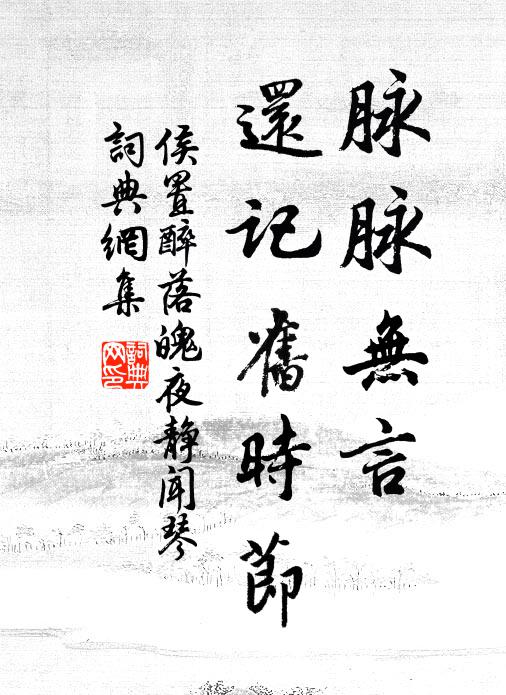 脉脉無言
還記舊時節
侯置醉落魄夜静闻琴
詞典網集
詞典
网印